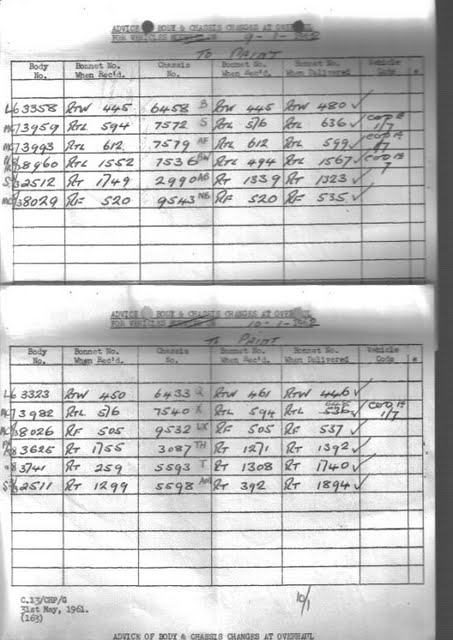 ADVICE OF BODY & CHASSIS CHANGES AT OVERHAUL
FOR VEHICLES 9-1-1962
TO PAINT
Body No. Bonnet No. When Rec'd. Chassis No. Bonnet No. When Rec'd. Bonnet No. When Delivered Vehicle Code *
L6 3358 RTW 445 6458 B RTW 445 RTW 480 ✓
3959 RTL 594 7572 S RTL 516 RTL 636 ✓ 1/7
3993 RTL 612 7579 AF RTL 612 RTL 599 ✓ 1/7
8960 RTL 1552 7536 BW RTL 494 RTL 1567 ✓ 7
2512 RT 1749 2990 AG RT 1339 RT 1323 ✓
8029 RF 520 9543 NB RF 520 RF 535 ✓
ADVICE OF BODY & CHASSIS CHANGES AT OVERHAUL
FOR VEHICLES 10-1-1962
TO PAINT
Body No. Bonnet No. When Rec'd. Chassis No. Bonnet No. When Rec'd. Bonnet No. When Delivered Vehicle Code *
L6 3323 RTW 450 6433 Q RTW 461 RTW 446 ✓
3982 RTL 516 7540 X RTL 594 RTL ✓ 1/7
8026 RF 505 9532 LX RF 505 RF 537 ✓
3625 RT 1755 3087 TH RT 1271 RT 1392 ✓
3741 RT 259 5593 T RT 1308 RT 1740 ✓
2511 RT 1299 5598 RT 392 RT 1894 ✓
C.13/CHP/G
31st May, 1961.
(163)
10/1
ADVICE OF BODY & CHASSIS CHANGES AT OVERHAUL